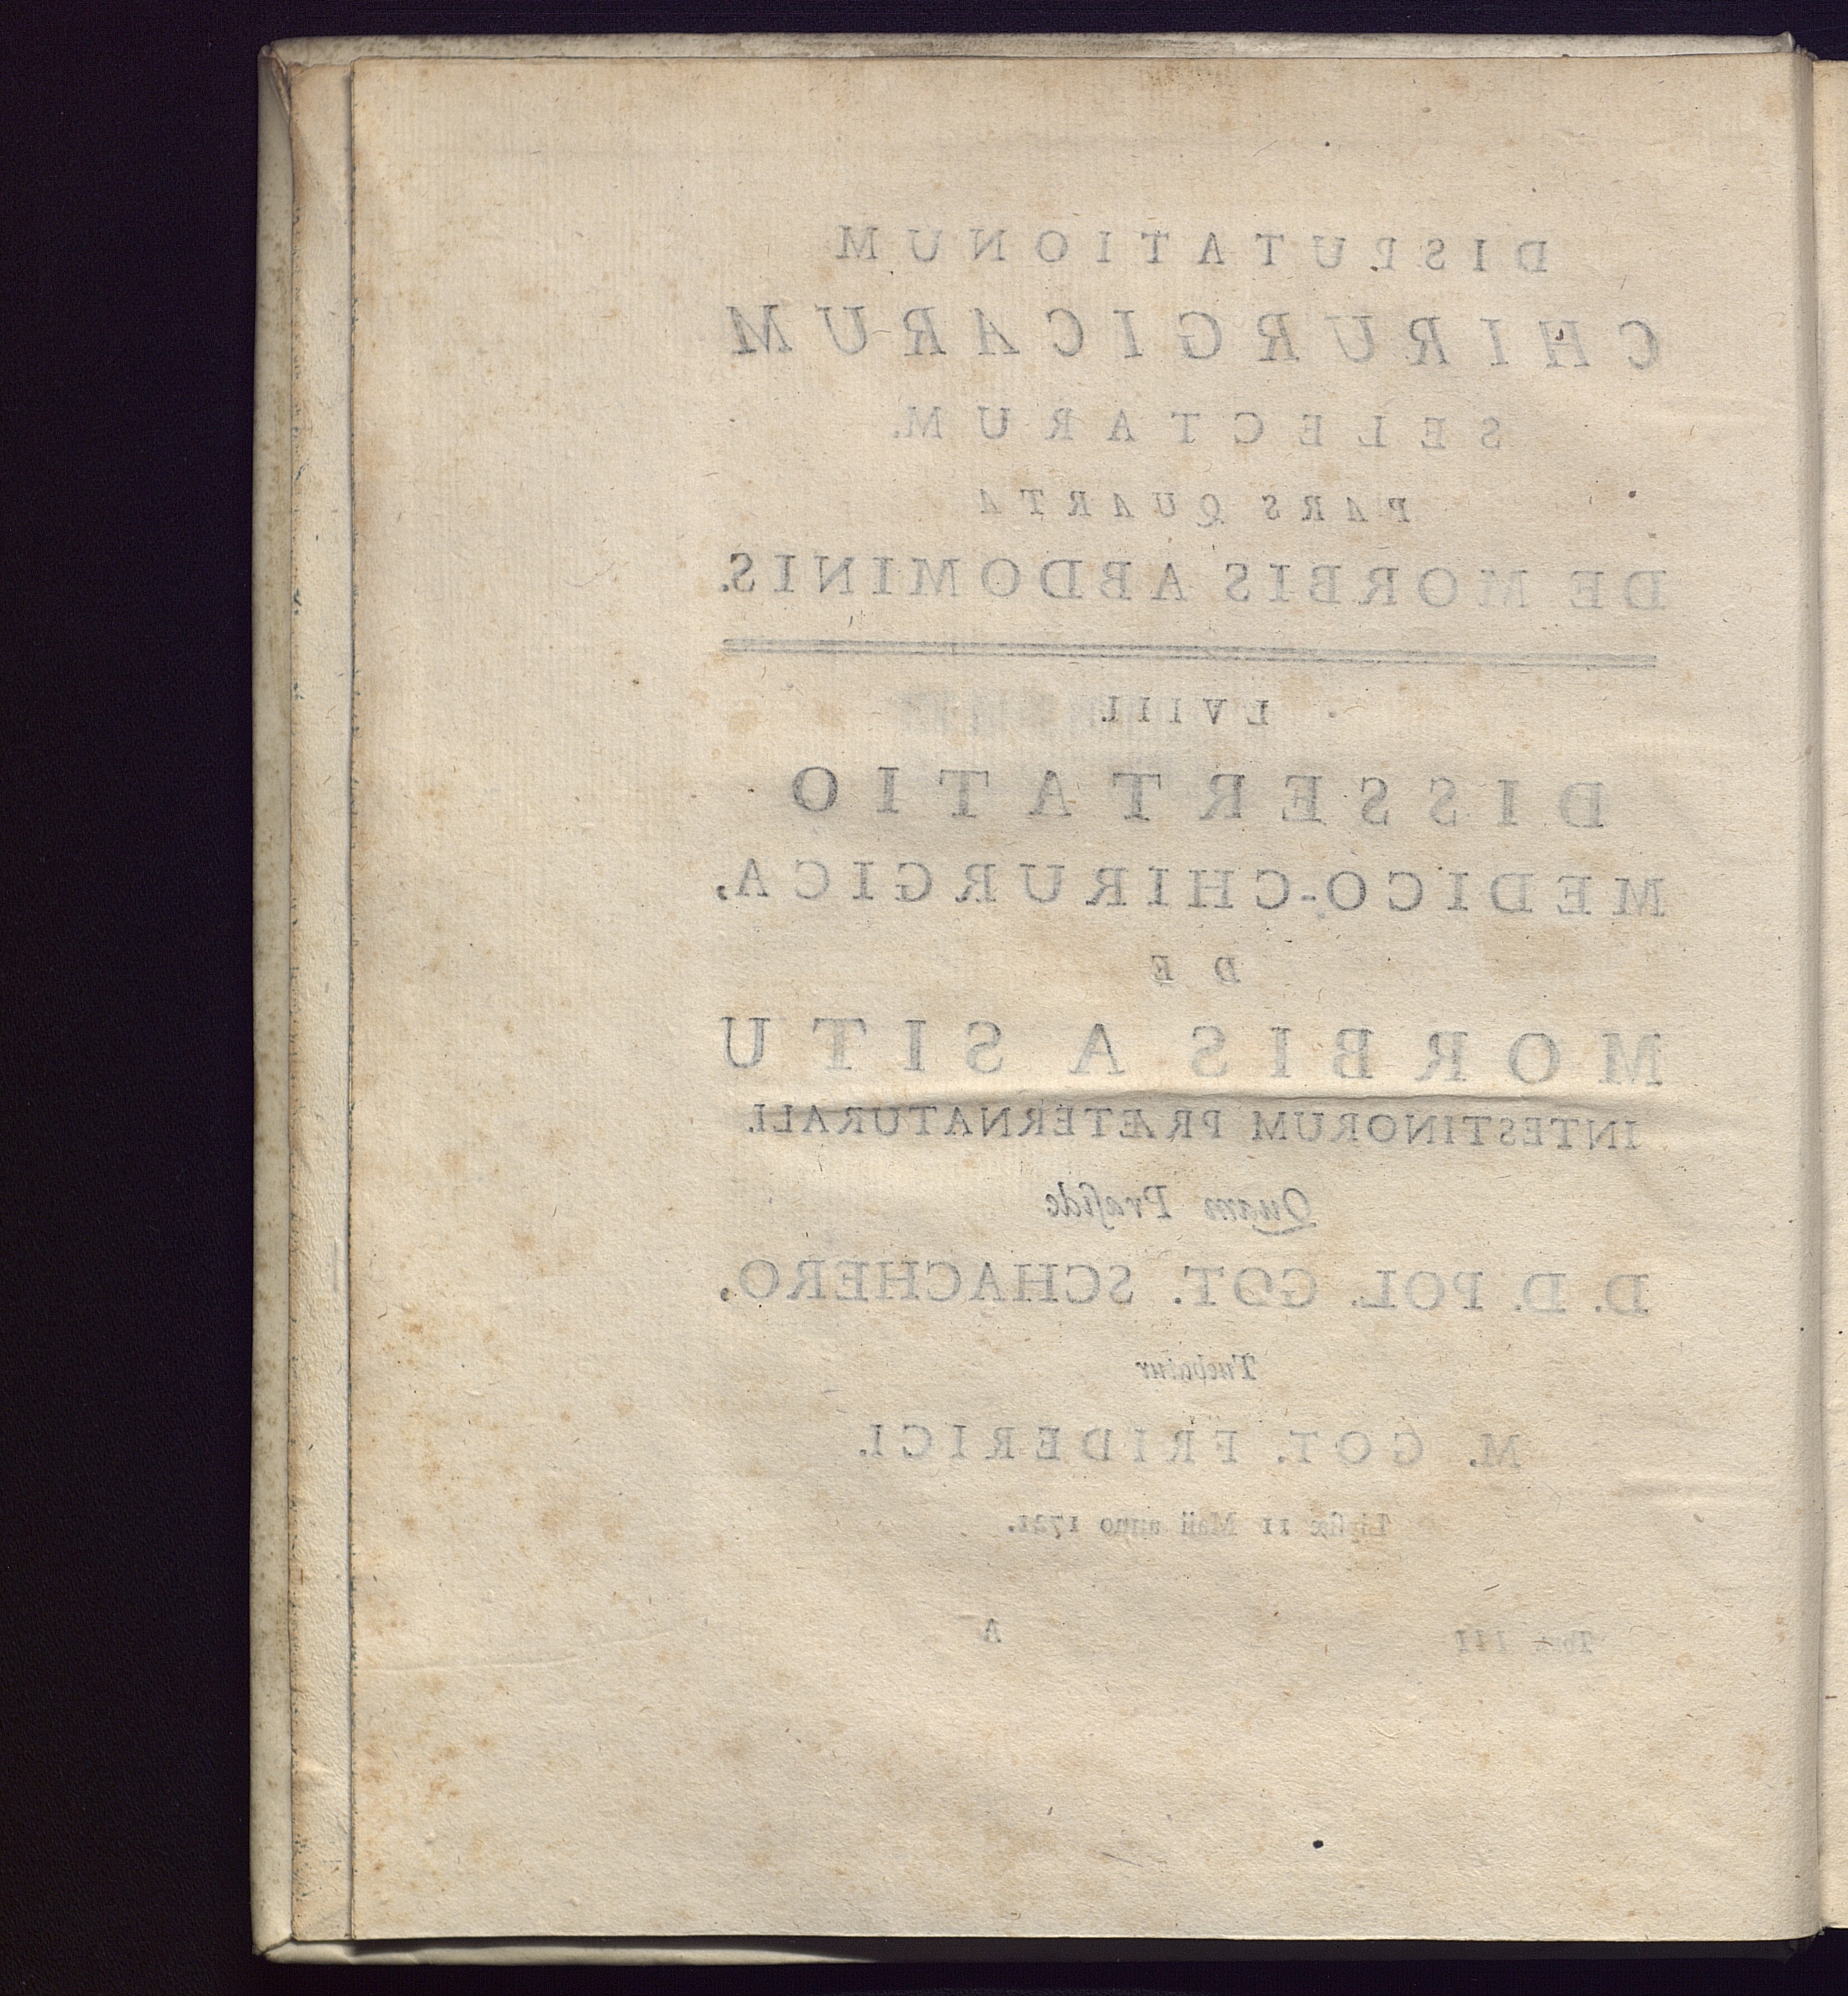 DISPUTATIONUM
CHIRURGICARUM
SELECTARUM.
PARS QUARTA
DE MORBIS ABDOMINIS.
LVIII.
DISSERTATIO
MEDICO-CHIRURGICA,
DE
MORBIS A SITU
INTESTINORUM PRÆTERNATURALI.
Quam Præſide
D. D. POL. GOT. SCHACHERO,
Tuebatur
M. GOT. FRIDERICI.
Lipſiæ 11 Maii anno 1721.
Tom. III A